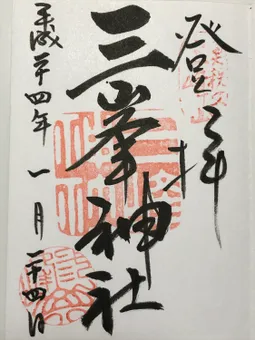 登拝
三峯神社
平成廿四年一月二十四日